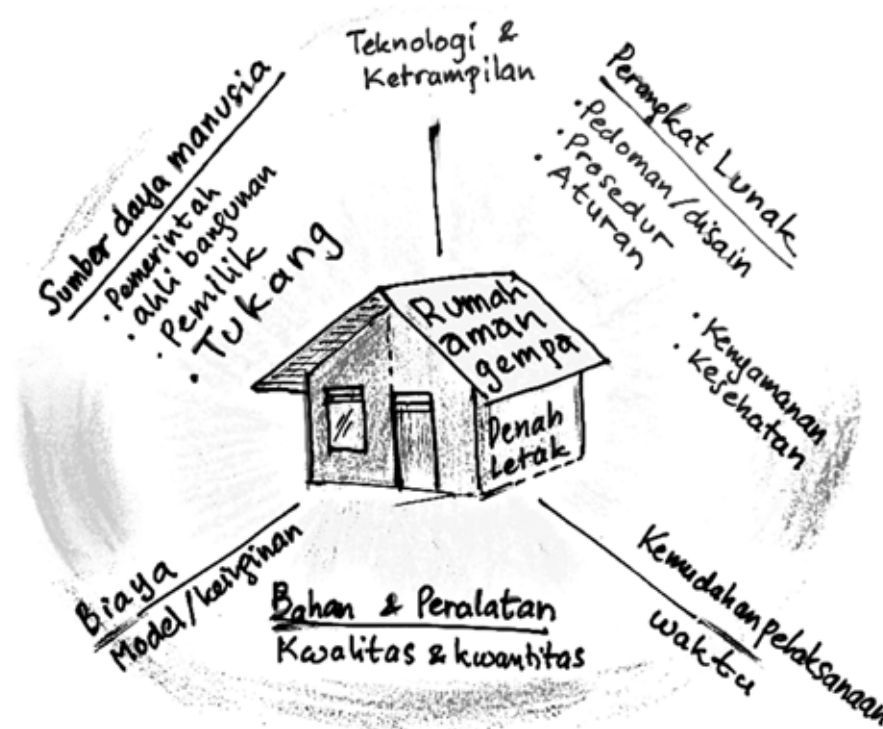 Teknologi &
Ketrampilan
Sumber daya manusia
• Pemerintah
• ahli bangunan
• Pemilik
• Tukang
Perangkat Lunak
• Pedoman/disain
• Prosedur
• Aturan
• Kenyamanan
• Kesehatan
Rumah
aman
gempa
Denah
Letak
Biaya
Model/keinginan
Bahan & Peralatan
Kwalitas & kwantitas
Kemudahan pelaksanaan
waktu